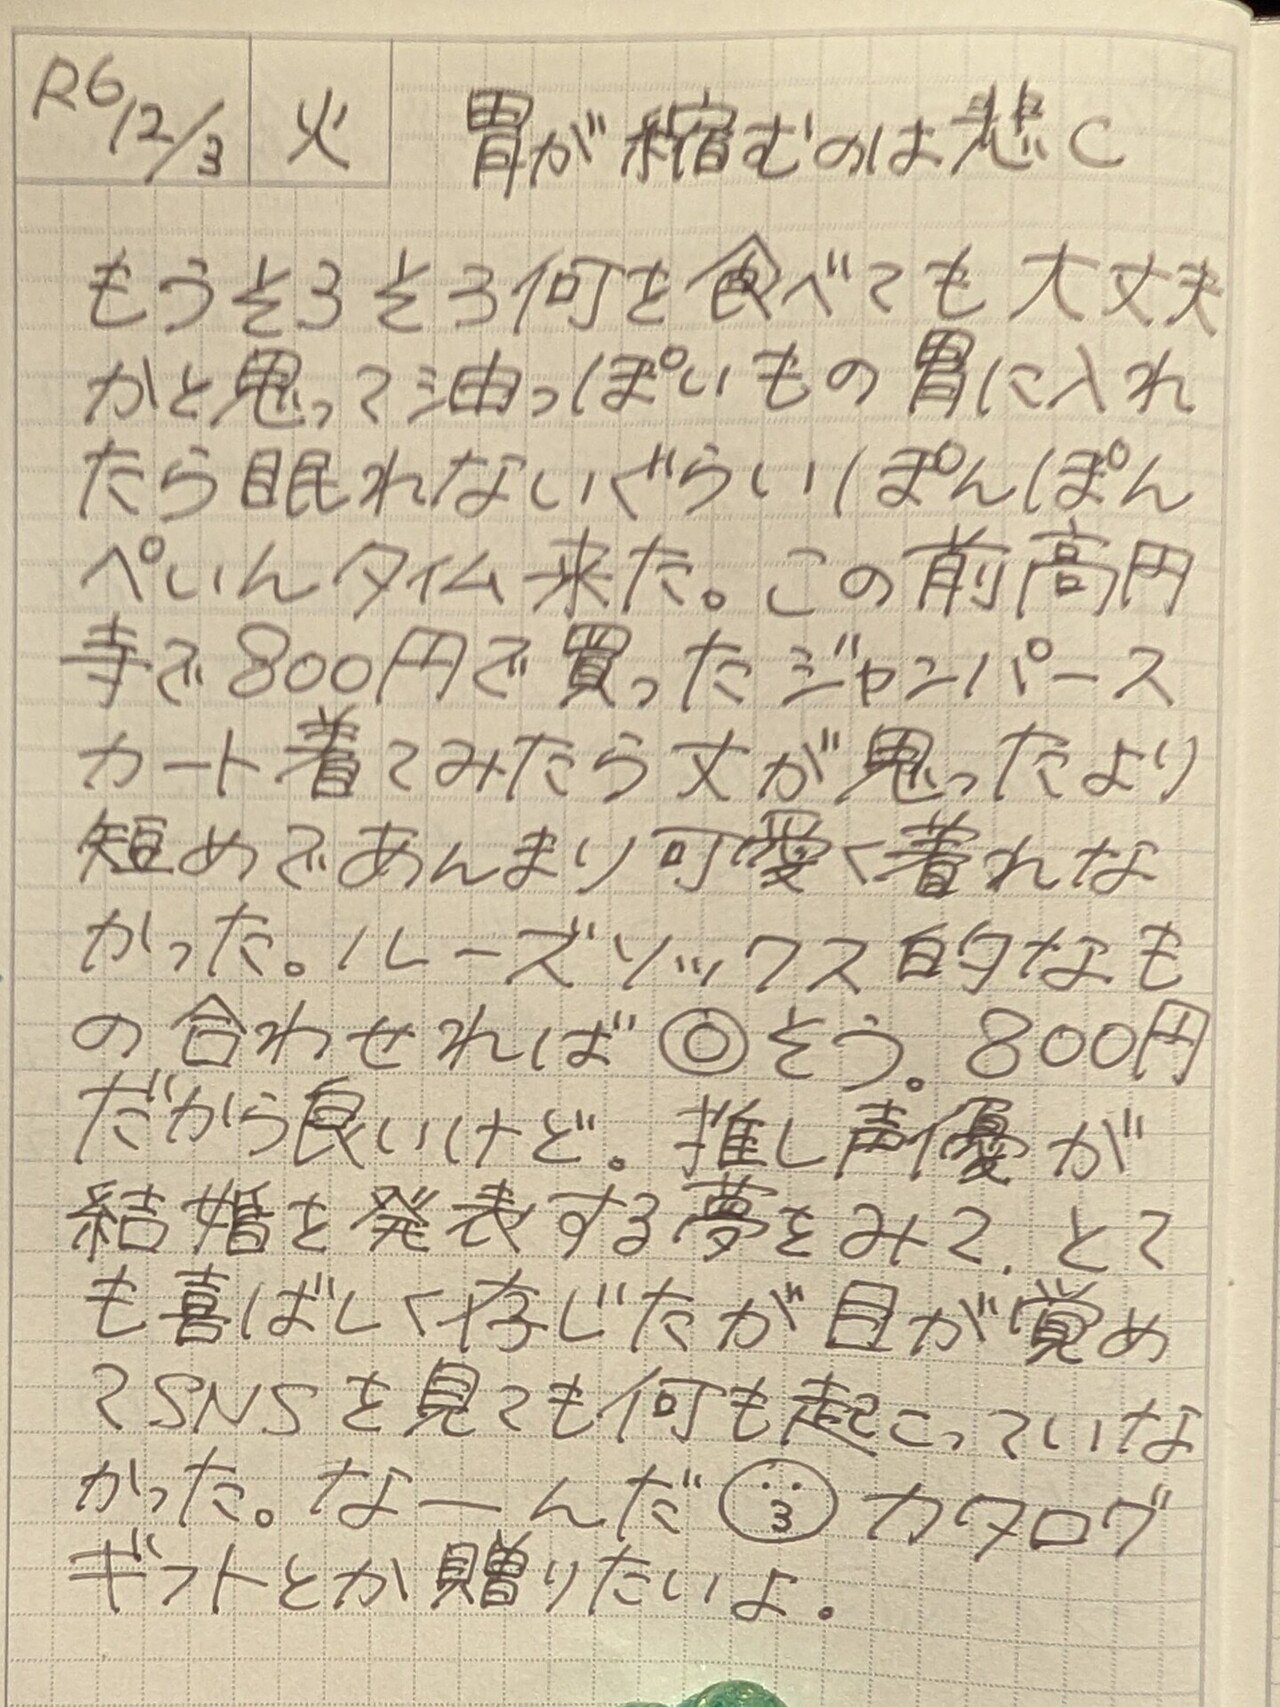 R6 12/3 火 胃が縮むのは悲C
もうそろそろ何を食べても大丈夫
かと思って油っぽいもの胃に入れ
たら眠れないぐらいぽんぽん
ぺいんタイム来た。この前高円
寺で800円で買ったジャンパース
カート着てみたら丈が思ったより
短めであんまり可愛く着れな
かった。ルーズソックス的なも
の合わせれば◎そう。800円
だから良いけど。推し声優が
結婚を発表する夢をみて、とて
も喜ばしく存じたが目が覚め
てSNSを見ても何も起こっていな
かった。なーんだ カタログ
ギフトとか贈りたいよ。